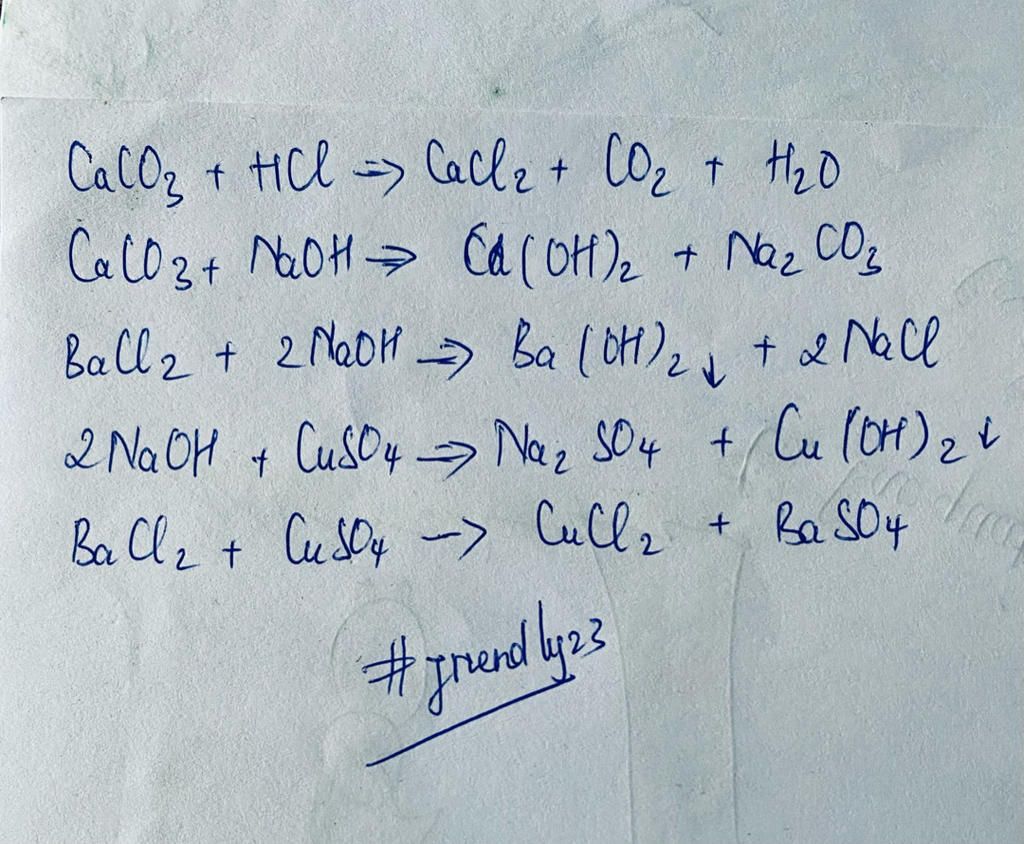 CaCO₃ + HCl => CaCl₂ + CO₂ + H₂O
CaCO₃ + NaOH => Ca(OH)₂ + Na₂CO₃
BaCl₂ + 2NaOH => Ba(OH)₂↓ + 2NaCl
2NaOH + CuSO₄ => Na₂SO₄ + Cu(OH)₂↓
BaCl₂ + CuSO₄ -> CuCl₂ + BaSO₄
#friendly23